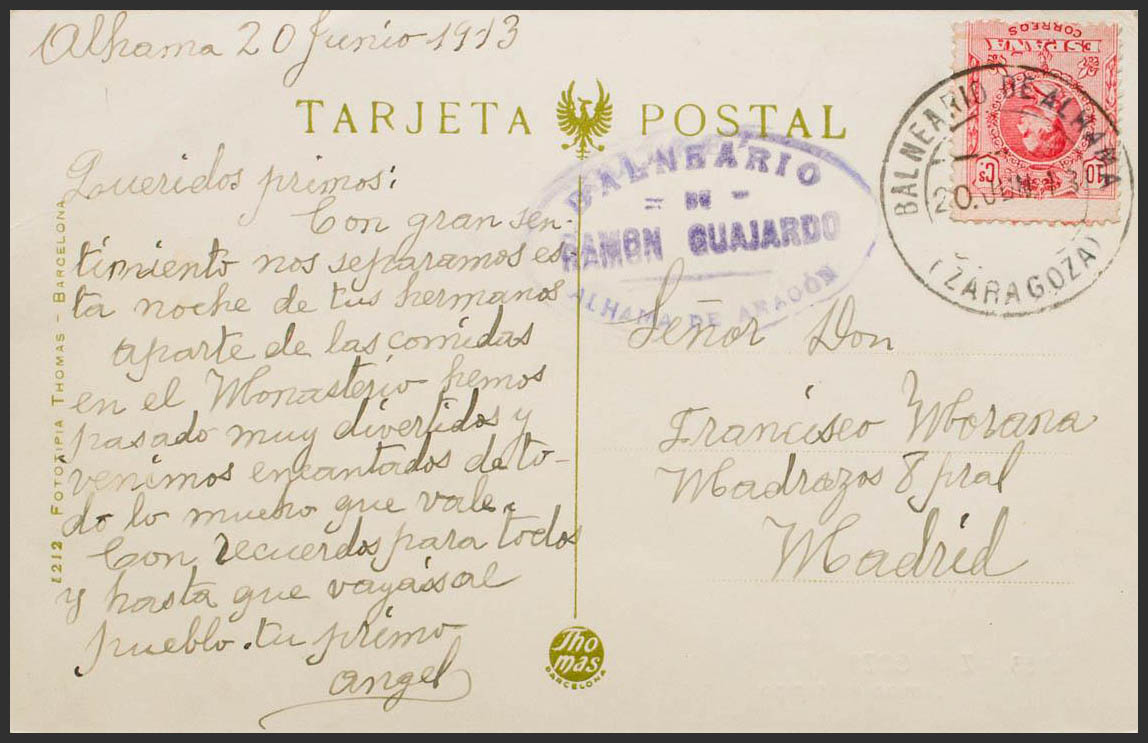 Alhama 20 Junio 1913
TARJETA POSTAL
Queridos primos:
Con gran sen-
timiento nos separamos es-
ta noche de tus hermanos
aparte de las comidas
en el Monasterio hemos
pasado muy divertidos y
venimos encantados de to-
do lo mucho que vale.
Con recuerdos para todos
y hasta que vayáis al
pueblo. tu primo
angel
1212 FOTOTIPIA THOMAS - BARCELONA
Thomas
BARCELONA
BALNEARIO
= DE =
RAMON GUAJARDO
ALHAMA DE ARAGÓN
ESPAÑA
CORREOS
10 Cs.
BALNEARIO DE ALHAMA
20.JUN.13
(ZARAGOZA)
Señor Don
Francisco Morana
Madrazos 8 pral
Madrid